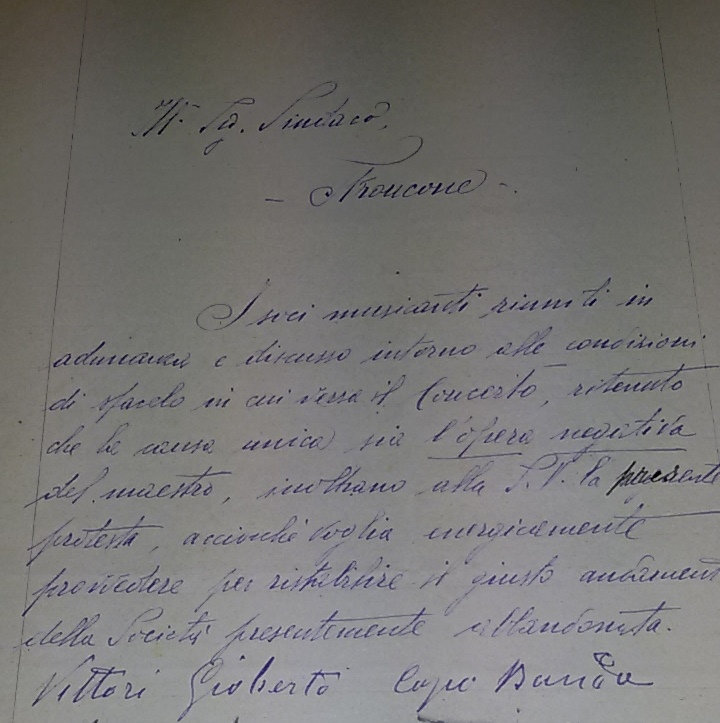 Ill. Sg. Sindaco,
- Stroncone -
I soci musicanti riuniti in
adunanza e discusso intorno alle condizioni
di sfacelo in cui versa il Concerto, ritenuto
che la causa unica sia l'opera negativa
del maestro, inoltrano alla S.V. la presente
protesta, acciocché voglia energicamente
provvedere per ristabilire il giusto andament
della Società presentemente abbandonata.
Vittori Gioberto Capo Banda